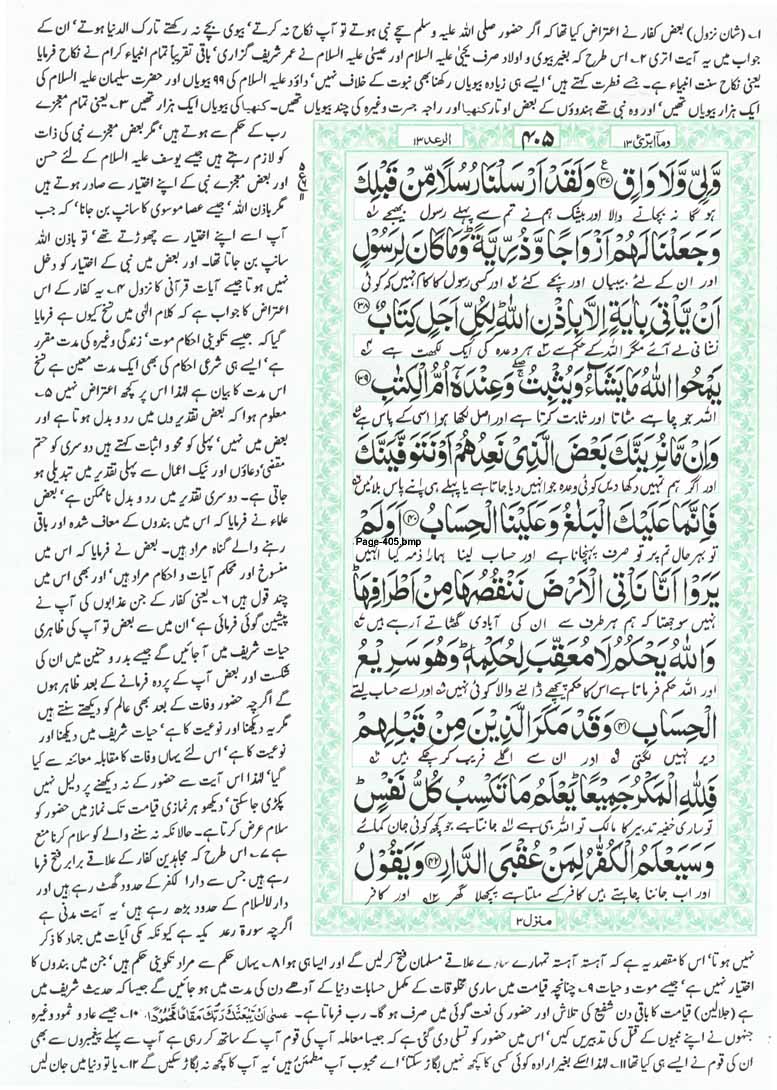 ۱؎ (شان نزول) بعض کفار نے اعتراض کیا تھا کہ اگر حضور صلی اللہ علیہ وسلم سچے نبی ہوتے تو آپ نکاح نہ کرتے' بیوی بچے نہ رکھتے تارک الدنیا ہوتے' ان کے
جواب میں یہ آیت اتری ۲؎ اس طرح کہ بغیر بیوی و اولاد صرف یحییٰ علیہ السلام اور عیسیٰ علیہ السلام نے عمر شریف گزاری' باقی تقریباً تمام انبیاء کرام نے نکاح فرمایا
یعنی نکاح سنت انبیاء ہے۔ جسے فطرت کہتے ہیں' ایسے ہی زیادہ بیویاں رکھنا بھی نبوت کے خلاف نہیں' داؤد علیہ السلام کی ۹۹ بیویاں اور حضرت سلیمان علیہ السلام کی
ایک ہزار بیویاں تھیں' اور وہ نبی تھے ہندوؤں کے بعض اوتار کنھیا اور راجہ جسرت وغیرہ کی چند بیویاں تھیں۔ کنھیا کی بیویاں ایک ہزار تھیں ۳؎ یعنی تمام معجزے
وما ابرئ ۱۳
۴۰۵
الرعد ۱۳
وَّلِيٍّ وَّلَا وَاقٍ ﴿۳۷﴾ وَلَقَدْ اَرْسَلْنَا رُسُلًا مِّنْ قَبْلِكَ
ہو گا نہ بچانے والا اور بیشک ہم نے تم سے پہلے رسول بھیجے
وَجَعَلْنَا لَهُمْ اَزْوَاجًا وَّذُرِّيَّةً ؕ وَمَا كَانَ لِرَسُوْلٍ
اور ان کے لئے بیبیاں اور بچے کئے اور کسی رسول کا کام نہیں کہ کوئی
اَنْ يَّاْتِيَ بِاٰيَةٍ اِلَّا بِاِذْنِ اللّٰهِ ؕ لِكُلِّ اَجَلٍ كِتَابٌ ﴿۳۸﴾
نشانی لے آئے مگر اللہ کے حکم سے ہر وعدہ کی ایک لکھت ہے
يَمْحُوا اللّٰهُ مَا يَشَآءُ وَيُثْبِتُ ۖۚ وَعِنْدَهٗۤ اُمُّ الْكِتٰبِ ﴿۳۹﴾
اللہ جو چاہے مٹاتا اور ثابت کرتا ہے اور اصل لکھا ہوا اسی کے پاس ہے
وَاِنْ مَّا نُرِيَنَّكَ بَعْضَ الَّذِيْ نَعِدُهُمْ اَوْ نَتَوَفَّيَنَّكَ
اور اگر ہم تمہیں دکھا دیں کوئی وعدہ جو انہیں دیا جاتا ہے یا پہلے ہی اپنے پاس بلائیں
فَاِنَّمَا عَلَيْكَ الْبَلٰغُ وَعَلَيْنَا الْحِسَابُ ﴿۴۰﴾ اَوَلَمْ
Page-405.bmp
تو بہر حال تم پر تو صرف پہنچانا ہے اور حساب لینا ہمارا ذمہ کیا انہیں
يَرَوْا اَنَّا نَاْتِي الْاَرْضَ نَنْقُصُهَا مِنْ اَطْرَافِهَا ؕ
نہیں سوجھتا کہ ہم ہر طرف سے ان کی آبادی گھٹاتے آ رہے ہیں
وَاللّٰهُ يَحْكُمُ لَا مُعَقِّبَ لِحُكْمِهٖ ؕ وَهُوَ سَرِيْعُ
اور اللہ حکم فرماتا ہے اس کا حکم پیچھے ڈالنے والا کوئی نہیں اور اسے حساب لیتے
الْحِسَابِ ﴿۴۱﴾ وَقَدْ مَكَرَ الَّذِيْنَ مِنْ قَبْلِهِمْ
دیر نہیں لگتی اور ان سے اگلے فریب کر چکے ہیں
فَلِلّٰهِ الْمَكْرُ جَمِيْعًا ؕ يَعْلَمُ مَا تَكْسِبُ كُلُّ نَفْسٍ ؕ
تو ساری خفیہ تدبیر کا مالک تو اللہ ہی ہے جانتا ہے جو کچھ کوئی جان کمائے
وَسَيَعْلَمُ الْكُفّٰرُ لِمَنْ عُقْبَى الدَّارِ ﴿۴۲﴾ وَيَقُوْلُ
اور اب جاننا چاہتے ہیں کافر کسے ملتا ہے پچھلا گھر اور کافر
منزل ۳
رب کے حکم سے ہوتے ہیں' مگر بعض معجزے نبی کی ذات
کو لازم رہتے ہیں جیسے یوسف علیہ السلام کے لئے حسن
اور بعض معجزے نبی کے اپنے اختیار سے صادر ہوتے ہیں
مگر باذن اللہ' جیسے عصا موسوی کا سانپ بن جانا' کہ جب
آپ اسے اپنے اختیار سے چھوڑتے تھے' تو باذن اللہ
سانپ بن جاتا تھا۔ اور بعض میں نبی کے اختیار کو دخل
نہیں ہوتا جیسے آیات قرآنی کا نزول ۴؎ یہ کفار کے اس
اعتراض کا جواب ہے کہ کلام الٰہی میں نسخ کیوں ہے فرمایا
گیا کہ جیسے تکوینی احکام موت' زندگی وغیرہ کی مدت مقرر
ہے' ایسے ہی شرعی احکام کی بھی ایک مدت معین ہے نسخ
اس مدت کا بیان ہے لہٰذا اس پر کچھ اعتراض نہیں ۵؎
معلوم ہوا کہ بعض تقدیروں میں رد و بدل ہوتا ہے اور
بعض میں نہیں' پہلی کو محو و اثبات کہتے ہیں دوسری کو حتم
مقضی' دعاؤں اور نیک اعمال سے پہلی تقدیر میں تبدیلی ہو
جاتی ہے۔ دوسری تقدیر میں رد و بدل ناممکن ہے' بعض
علماء نے فرمایا کہ اس میں بندوں کے معاف شدہ اور باقی
رہنے والے گناہ مراد ہیں۔ بعض نے فرمایا کہ اس میں
منسوخ اور محکم آیات و احکام مراد ہیں' اور بھی اس میں
چند قول ہیں ۶؎ یعنی کفار کے جن عذابوں کی آپ نے
پیشین گوئی فرمائی ہے' ان میں سے بعض تو آپ کی ظاہری
حیات شریف میں آ جائیں گے جیسے بدر و حنین میں ان کی
شکست اور بعض آپ کے پردہ فرمانے کے بعد ظاہر ہوں
گے اگرچہ حضور وفات کے بعد بھی عالم کو دیکھتے سنتے ہیں
مگر یہ دیکھنا اور نوعیت کا ہے' حیات شریف میں دیکھنا اور
نوعیت کا ہے' اس لئے یہاں وفات کا مقابلہ معائنہ سے کیا
گیا' لہٰذا اس آیت سے حضور کے نہ دیکھنے پر دلیل نہیں
پکڑی جا سکتی' دیکھو ہر نمازی قیامت تک نماز میں حضور کو
سلام عرض کرتا ہے۔ حالانکہ نہ سننے والے کو سلام کرنا منع
ہے ۷؎ اس طرح کہ مجاہدین کفار کے علاقے برابر فتح فرما
رہے ہیں جس سے دارا لکفر کے حدود گھٹ رہے ہیں اور
دارلاسلام کے حدود بڑھ رہے ہیں' یہ آیت مدنی ہے
اگرچہ سورۃ رعد مکیہ ہے کیونکہ مکی آیات میں جہاد کا ذکر
نہیں ہوتا' اس کا مقصد یہ ہے کہ آہستہ آہستہ تمہارے سارے علاقے مسلمان فتح کر لیں گے اور ایسا ہی ہوا ۸؎ یہاں حکم سے مراد تکوینی حکم ہیں' جن میں بندوں کا
اختیار نہیں ہے' جیسے موت و حیات ۹؎ چنانچہ قیامت میں ساری مخلوقات کے مکمل حسابات دنیا کے آدھے دن کی مدت میں ہو جائیں گے جیسا کہ حدیث شریف میں
ہے (جلالین) قیامت کا باقی دن شفیع کی تلاش اور حضور کی نعت گوئی میں صرف ہو گا۔ رب فرماتا ہے۔ عَسٰى اَنْ يَّبْعَثَكَ رَبُّكَ مَقَامًا مَّحْمُوْدًا ۱۰؎ جیسے عاد و ثمود وغیرہ
جنہوں نے اپنے نبیوں کے قتل کی تدبیریں کیں' اس میں حضور کو تسلی دی گئی ہے کہ جیسا معاملہ آپ کی قوم آپ کے ساتھ کر رہی ہے آپ سے پہلے پیغمبروں سے بھی
ان کی قوم نے ایسے ہی کیا تھا ۱۱؎ لہٰذا اسکے بغیر ارادہ کوئی کسی کا کچھ نہیں بگاڑ سکتا' اے محبوب آپ مطمئن رہیں' یہ آپ کا کچھ نہ بگاڑ سکیں گے ۱۲؎ یا تو دنیا میں جان لیں